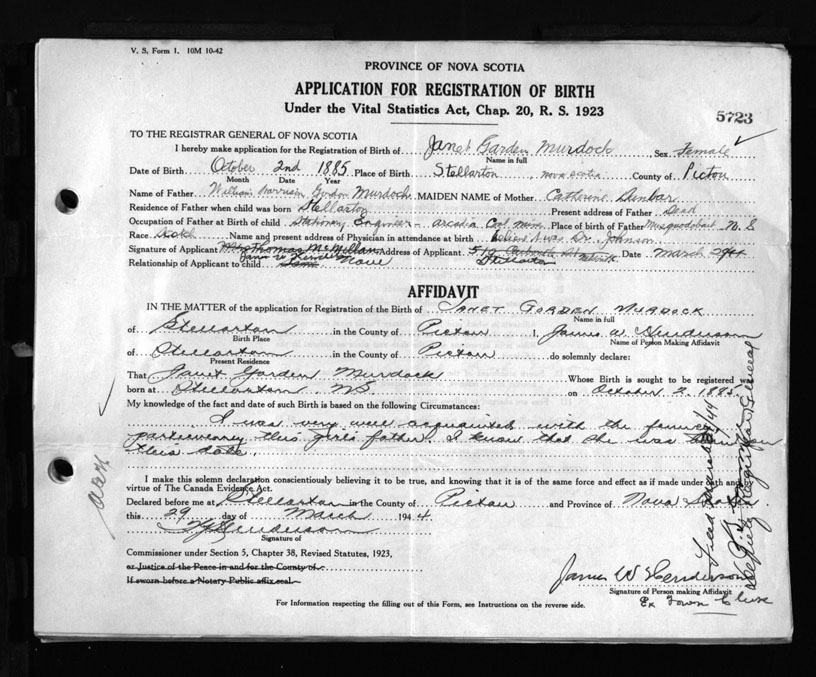 V. S. Form 1. 10M 10-42
PROVINCE OF NOVA SCOTIA
APPLICATION FOR REGISTRATION OF BIRTH
Under the Vital Statistics Act, Chap. 20, R. S. 1923
5723
TO THE REGISTRAR GENERAL OF NOVA SCOTIA
I hereby make application for the Registration of Birth of Janet Gorden Murdock Sex Female
Name in full
Date of Birth October 2nd 1885 Place of Birth Stellarton, Nova Scotia County of Pictou
Month Date Year
Name of Father William Gordon Murdoch MAIDEN NAME of Mother Catherine Dunbar
Residence of Father when child was born Stellarton Present address of Father Dead
Occupation of Father at Birth of child Stationary Engineer - Coal mine Place of birth of Father Musquodoboit N. S
Race Scotch Name and present address of Physician in attendance at birth Dr. Johnson
Signature of Applicant Mrs Thomas McMillan Address of Applicant Stellarton Date March 29
Relationship of Applicant to child None
AFFIDAVIT
IN THE MATTER of the application for Registration of the Birth of JANET GORDEN MURDOCK
Name in full
of Stellarton in the County of Pictou I, James W. Henderson
Birth Place Name of Person Making Affidavit
of Stellarton in the County of Pictou do solemnly declare:
Present Residence
That Janet Gorden Murdock Whose Birth is sought to be registered was
born at Stellarton, N.S. on October 2 1885.
My knowledge of the fact and date of such Birth is based on the following Circumstances:
I was very well acquainted with the family
particularly this girls father. I know that she was born on
this date.
I make this solemn declaration conscientiously believing it to be true, and knowing that it is of the same force and effect as if made under oath and by
virtue of The Canada Evidence Act.
Declared before me at Stellarton in the County of Pictou and Province of Nova Scotia
this 29 day of March 1944
Henderson
Signature of
Commissioner under Section 5, Chapter 38, Revised Statutes, 1923,
or Justice of the Peace in and for the County of
If sworn before a Notary Public affix seal
James W Henderson
Signature of Person making Affidavit
Ex Town Clerk
For Information respecting the filling out of this Form, see Instructions on the reverse side.
Deputy Registrar General